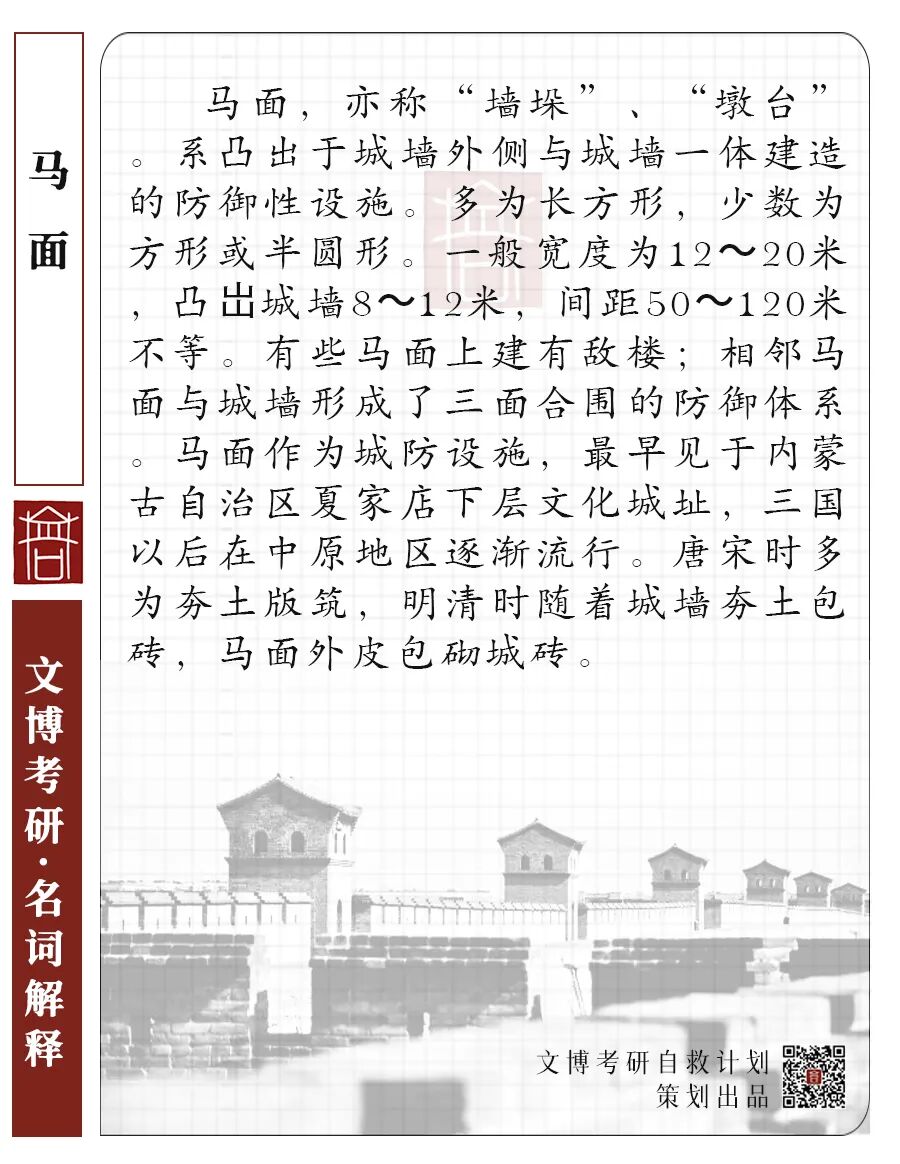 马面
马面，亦称“墙垛”、“墩台”
。系凸出于城墙外侧与城墙一体建造
的防御性设施。多为长方形，少数为
方形或半圆形。一般宽度为12～20米
，凸出城墙8～12米，间距50～120米
不等。有些马面上建有敌楼；相邻马
面与城墙形成了三面合围的防御体系
。马面作为城防设施，最早见于内蒙
古自治区夏家店下层文化城址，三国
以后在中原地区逐渐流行。唐宋时多
为夯土版筑，明清时随着城墙夯土包
砖，马面外皮包砌城砖。
文博考研·名词解释
文博考研自救计划
策划出品